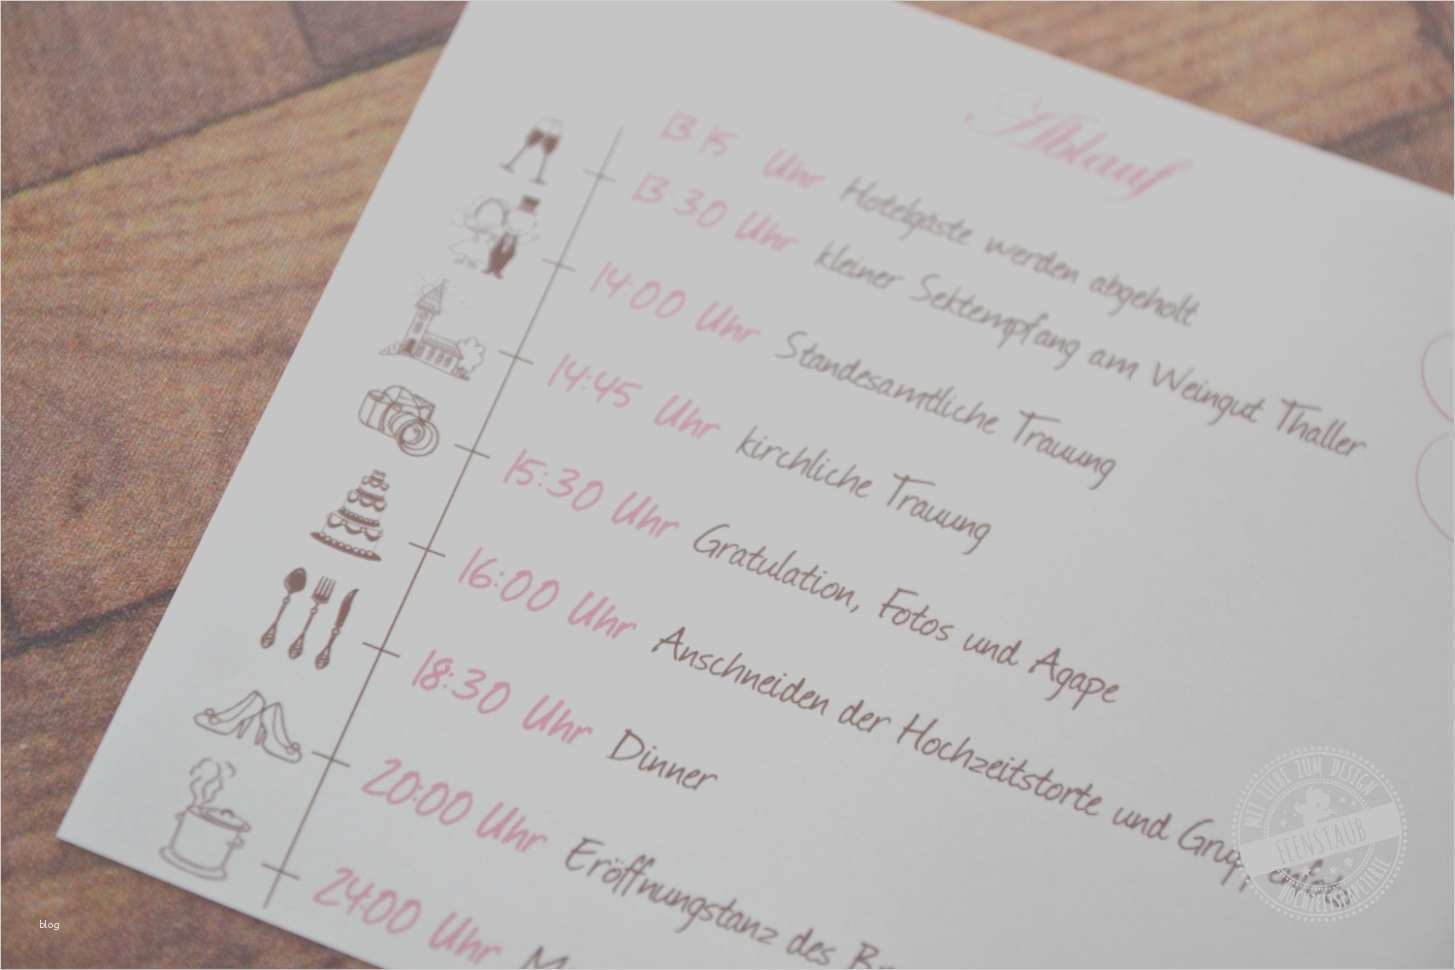 Ablauf
13 15 Uhr Hotelgäste werden abgeholt
13 30 Uhr kleiner Sektempfang am Weingut Thaller
14:00 Uhr Standesamtliche Trauung
14:45 Uhr kirchliche Trauung
15:30 Uhr Gratulation, Fotos und Agape
16:00 Uhr Anschneiden der Hochzeitstorte und
18:30 Uhr Dinner
20:00 Uhr Eröffnungstanz des
24:00 Uhr
MIT LIEBE ZUM DESIGN
FEENSTAUB
blog